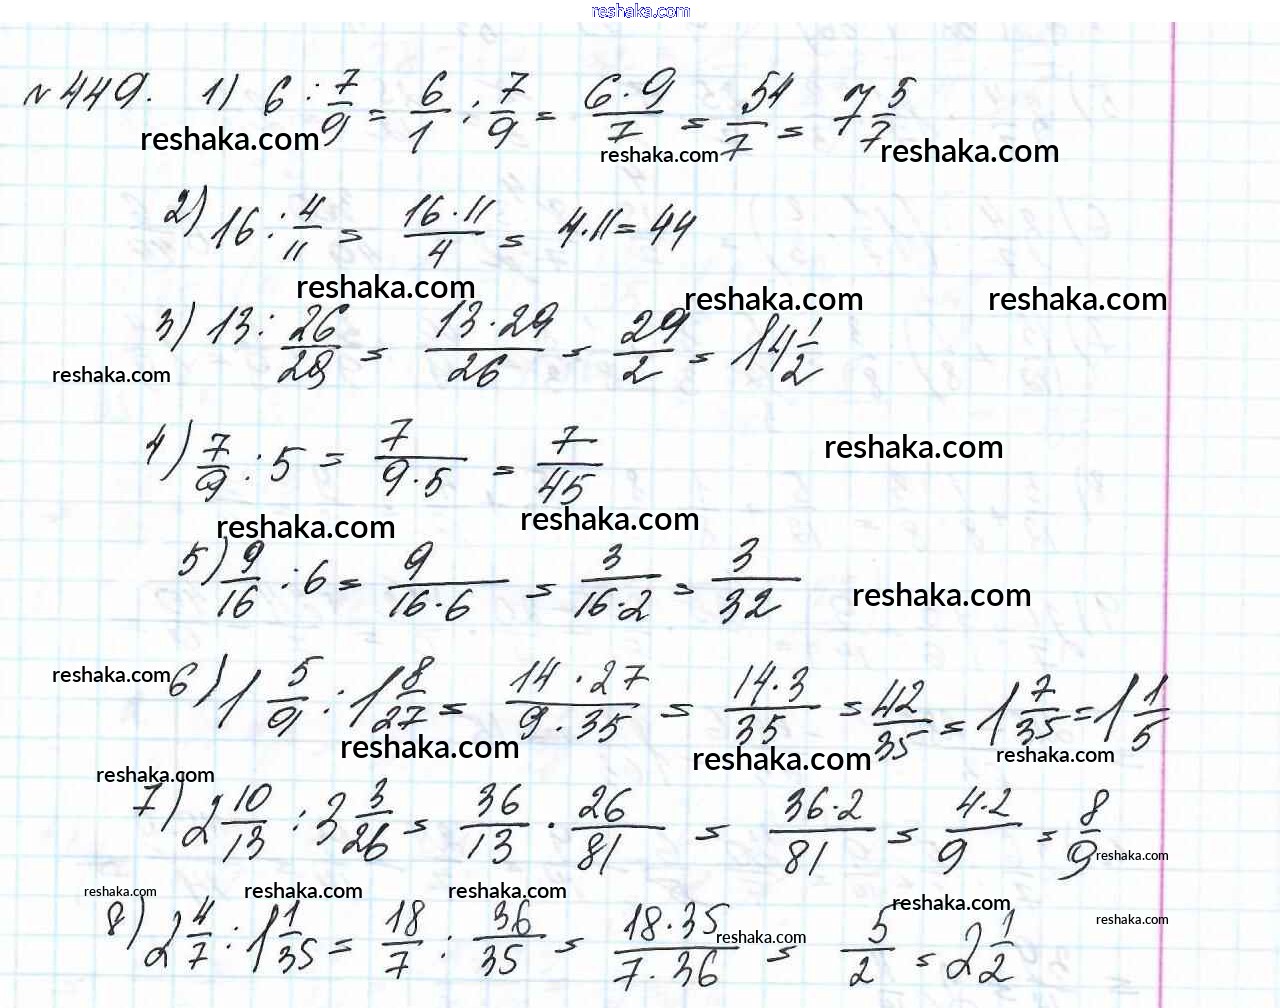 reshaka.com
№ 449. 1) 6 : 7/9 = 6/1 : 7/9 = 6·9/7 = 54/7 = 7 5/7
reshaka.com reshaka.com reshaka.com
2) 16 : 4/11 = 16·11/4 = 4·11 = 44
reshaka.com reshaka.com reshaka.com
3) 13 : 26/29 = 13·29/26 = 29/2 = 14 1/2
reshaka.com
4) 7/9 : 5 = 7/9·5 = 7/45
reshaka.com
reshaka.com reshaka.com
5) 9/16 : 6 = 9/16·6 = 3/16·2 = 3/32
reshaka.com
reshaka.com
6) 1 5/9 : 1 8/27 = 14·27/9·35 = 14·3/35 = 42/35 = 1 7/35 = 1 1/5
reshaka.com reshaka.com reshaka.com
reshaka.com
7) 2 10/13 : 3 3/26 = 36/13 · 26/81 = 36·2/81 = 4·2/9 = 8/9
reshaka.com
reshaka.com reshaka.com reshaka.com reshaka.com
reshaka.com
8) 2 4/7 : 1 1/35 = 18/7 : 36/35 = 18·35/7·36 = 5/2 = 2 1/2
reshaka.com